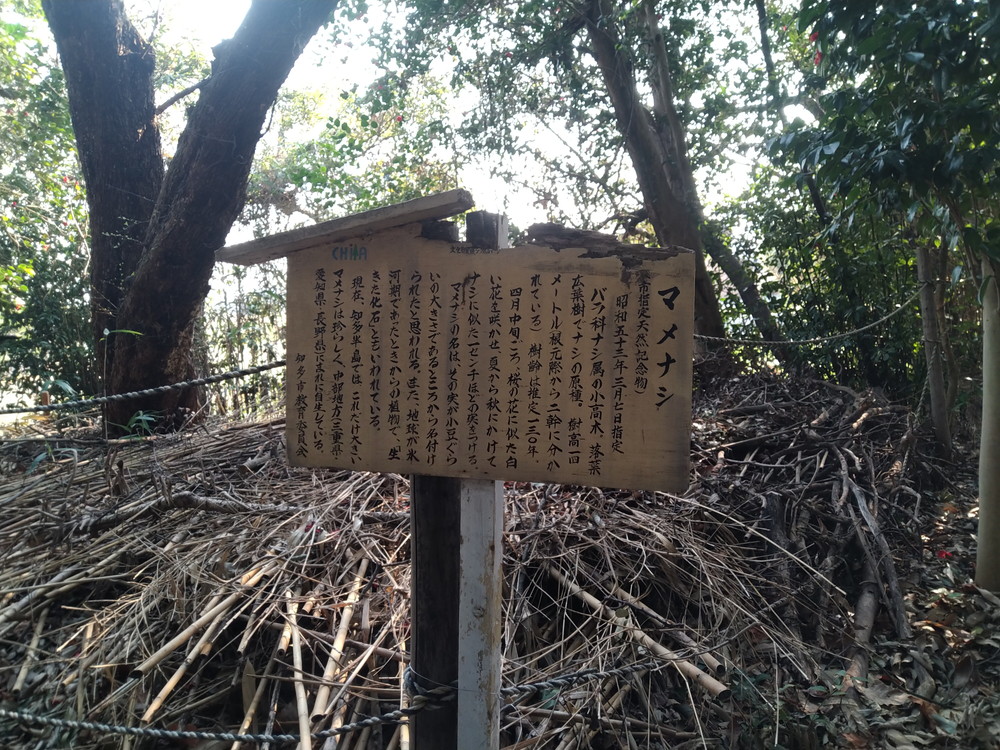 マメナシ
市指定天然記念物）
昭和五十三年三月七日指定
バラ科ナシ属の小高木、落葉
広葉樹でナシの原種。樹高一〇
メートル根元際から二幹に分か
れている。樹齢は推定一三〇年。
四月中旬ごろ、桜の花に似た白
い花を咲かせ、夏から秋にかけて
ナシに似た一センチほどの実をつける。
マメナシの名は、その実が小豆ぐら
いの大きさであるところから名付け
られたと思われる。また、地球が氷
河期であったときからの植物で、「生
きた化石」ともいわれている。
現在、知多半島では、これだけ大きい
マメナシは珍らしく、中部地方（三重県・
愛知県・長野県）にまれに自生している。
知多市教育委員会
CHITA